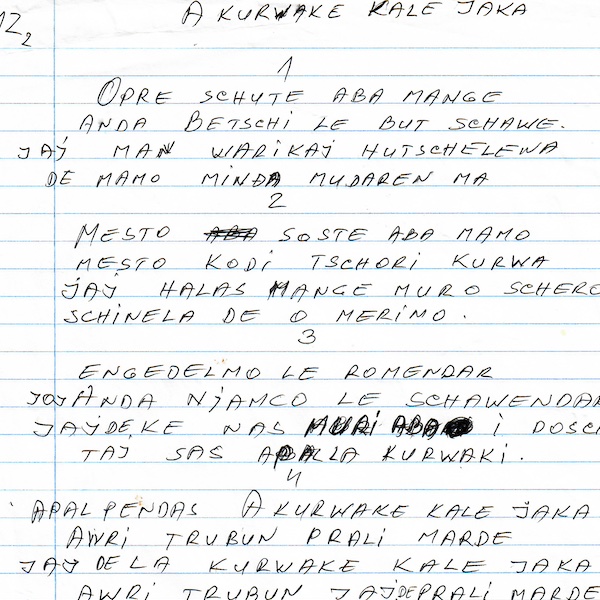 A KURWAKE KALE JAKA
1
OPRE SCHUTE ABA MANGE
ANDA BETSCHI LE BUT SCHAWE.
JAJ MAN WARIKAJ HUTSCHELEWA
DE MAMO MINDA MUDAREN MA
2
MESTO SOSTE ABA MAMO
MESTO KODI TSCHORI KURWA
JAJ HALAS MANGE MURO SCHERO
SCHINELA DE O MERIMO.
3
ENGEDELMO LE ROMENDAR
JOJ ANDA NJAMCO LE SCHAWENDAR
JAJ DEKE NAS I DOSCH
TAJ SAS KURWAKI.
4
APALPENDAS A KURWAKE KALE JAKA
AWRI TRUBUN PRALI MARDE
JAJ DE LA KURWAKE KALE JAKA
AWRI TRUBUN JAJDEPRALI MARDE